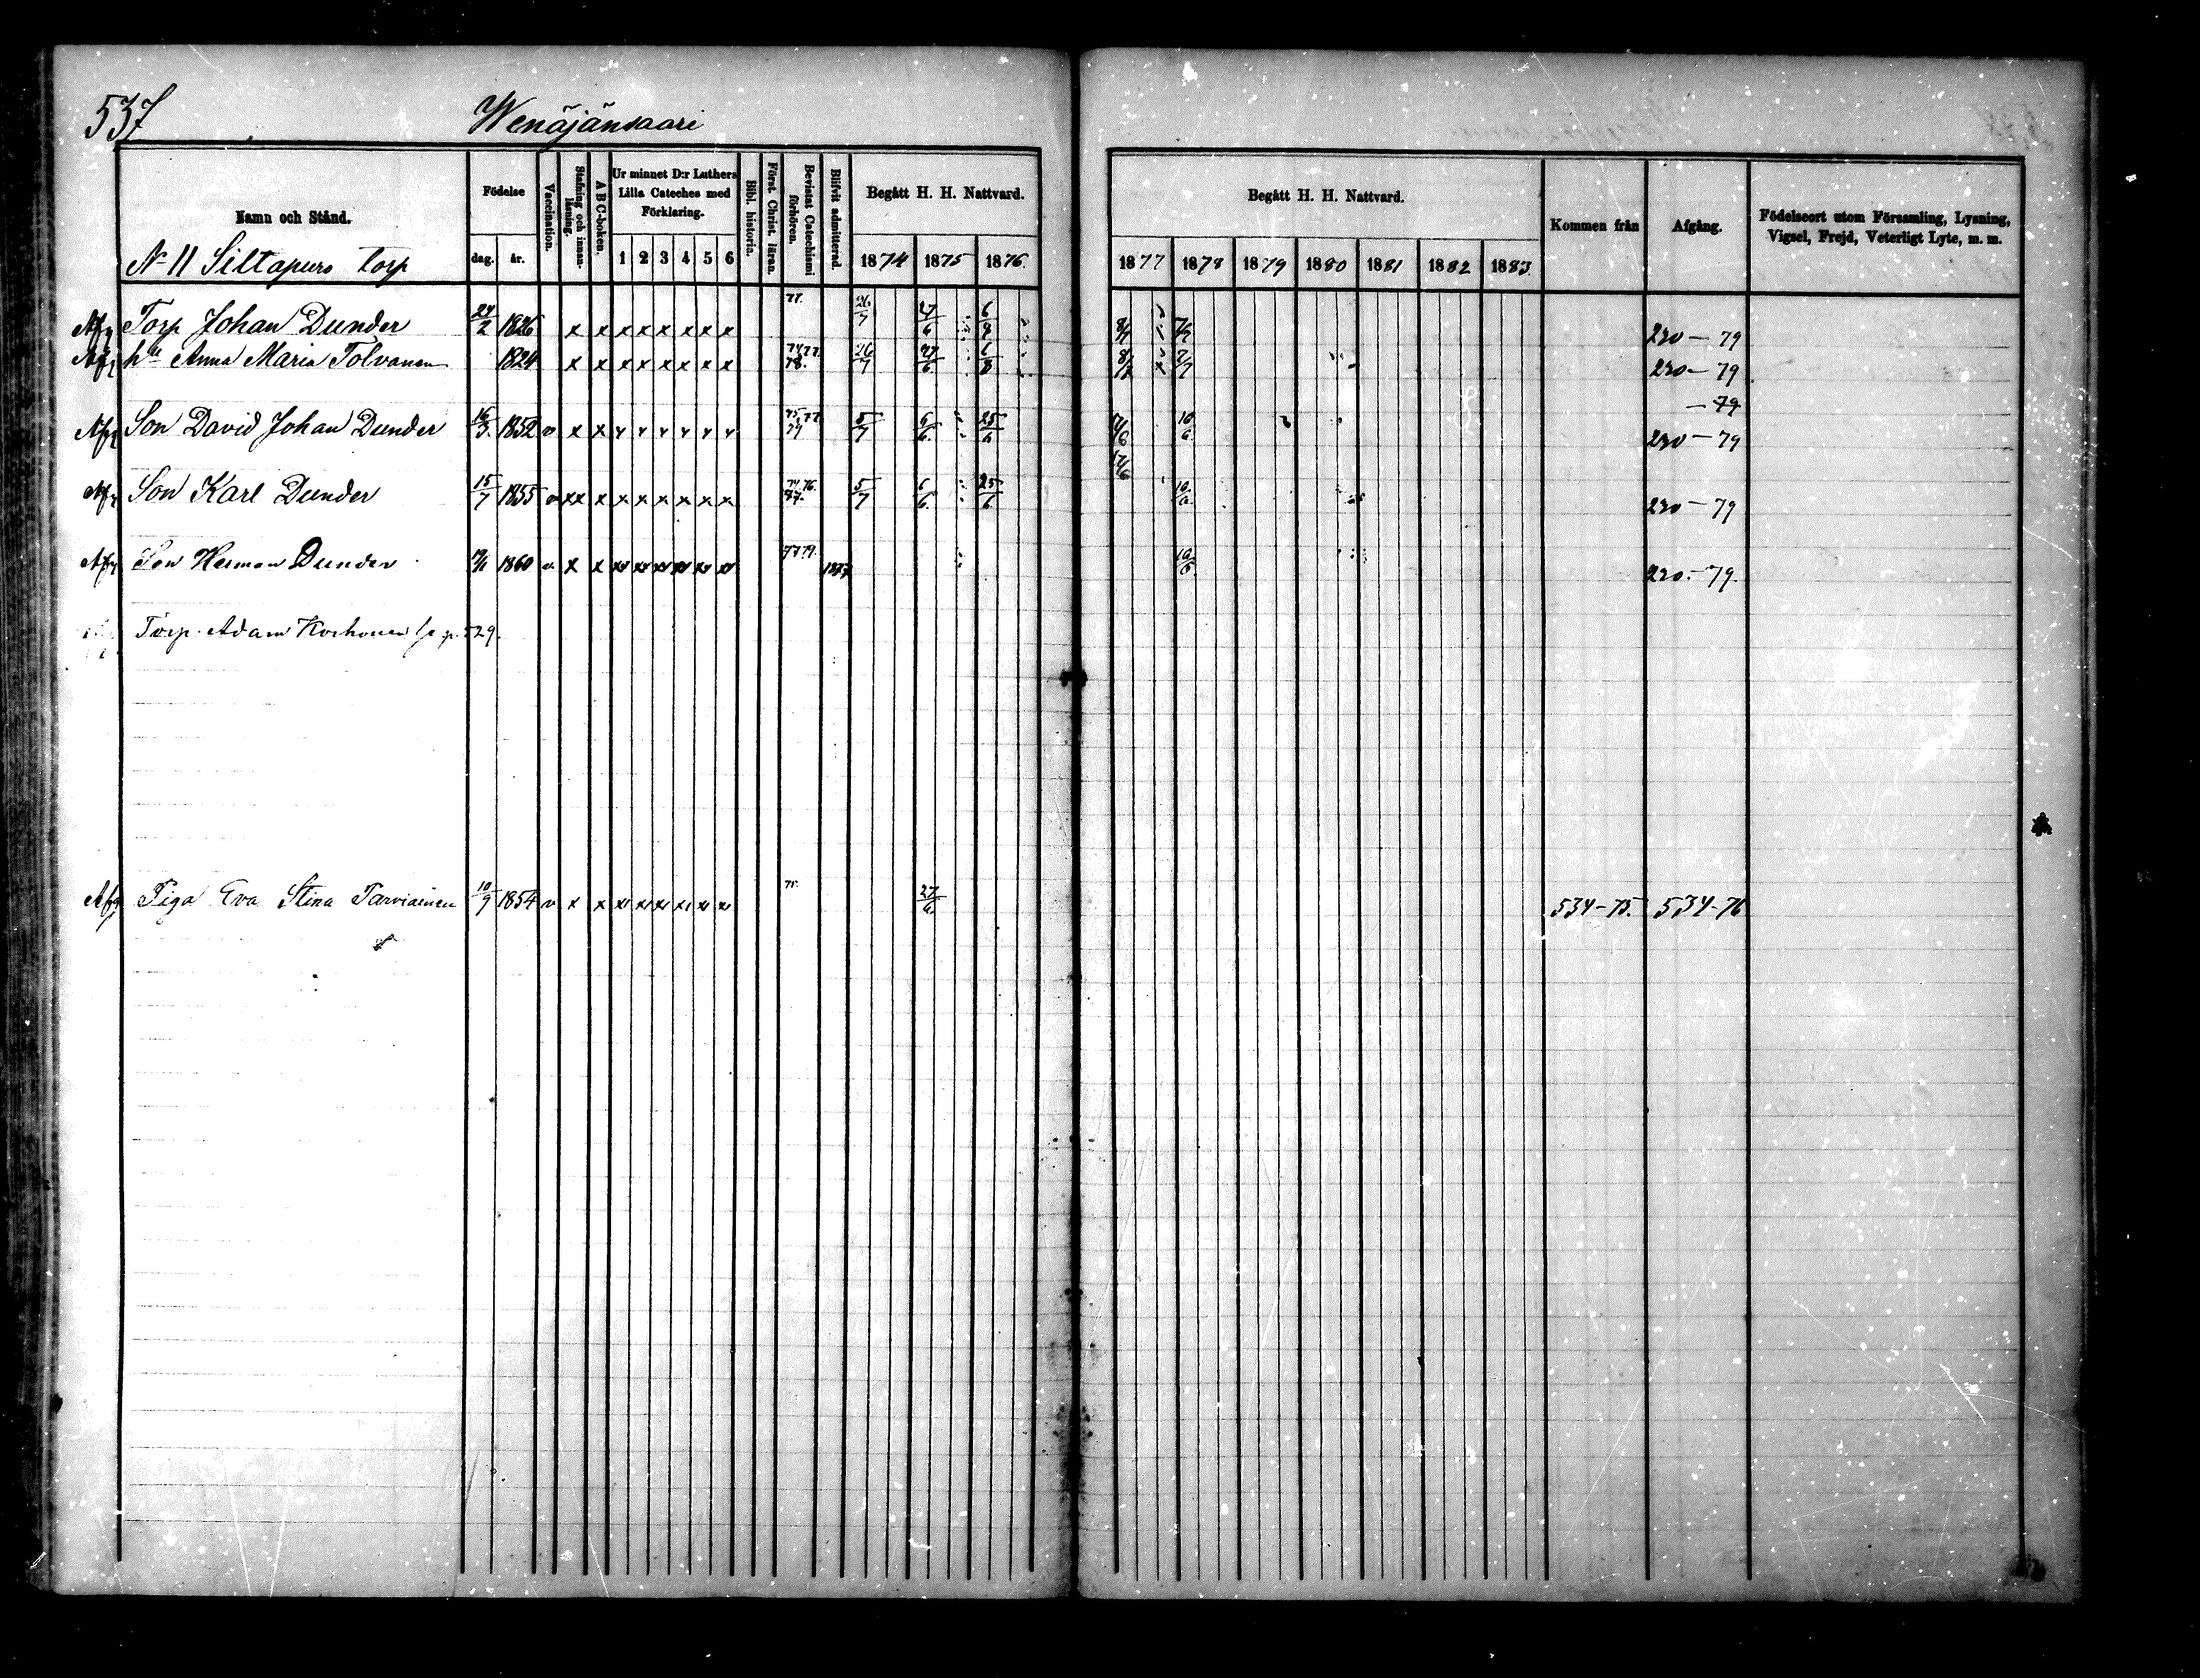 537 Wenäjänsaari
Namn och Stånd. Födelse Vaccination. Stafning och innanläsning. A B C-boken. Ur minnet D:r Luthers Lilla Cateches med Förklaring. Bibl. historia. Först. Christ. läran. Bevistat Catechismi förhören. Blifvit admitterad. Begått H. H. Nattvard. Begått H. H. Nattvard. Kommen från Afgång. Födelseort utom Församling, Lysning, Vigsel, Frejd, Veterligt Lyte, m. m.
N 11 Siltapuro torp dag. år. 1 2 3 4 5 6 1874 1875 1876. 1877 1878 1879 1880 1881 1882 1883
Afg Torp Johan Dunder 24/2 1826 x x x x x x x x 77. 26/7 27/6 6/8 8/7 7/7 230 — 79
Afg hu Anna Maria Tolvanen 1824 x x x x x x x x 74 77. 78. 26/7 27/6 6/8 8/7 7/7 230 — 79
— 79
Afg Son David Johan Dunder 16/3 1852 v x x v v v v v v 75 77 79 5/7 6/6. 25/6 17/6 10/6. 230 — 79
Afg Son Karl Dunder 15/7 1855 v xx x x x x x x x 74 76. 77. 5/7 6/6. 25/6. 17/6 10/6. 230 — 79
Afg Son Herman Dunder 1860 v x x 77 79. 1877 10/6. 230. — 79.
Torp. Adam Korhonen se p. 529.
Afg Piga Eva Stina Tarviainen 10/9 1854 v x x 75. 27/6. 534-75. 534-76